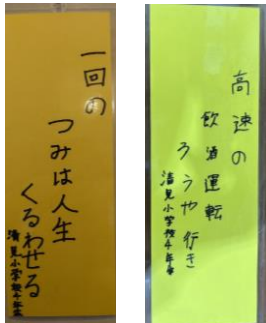 一回の
つみは人生
くるわせる
清見小学校4年生
高速の
飲酒運転
ろうや行き
清見小学校4年生